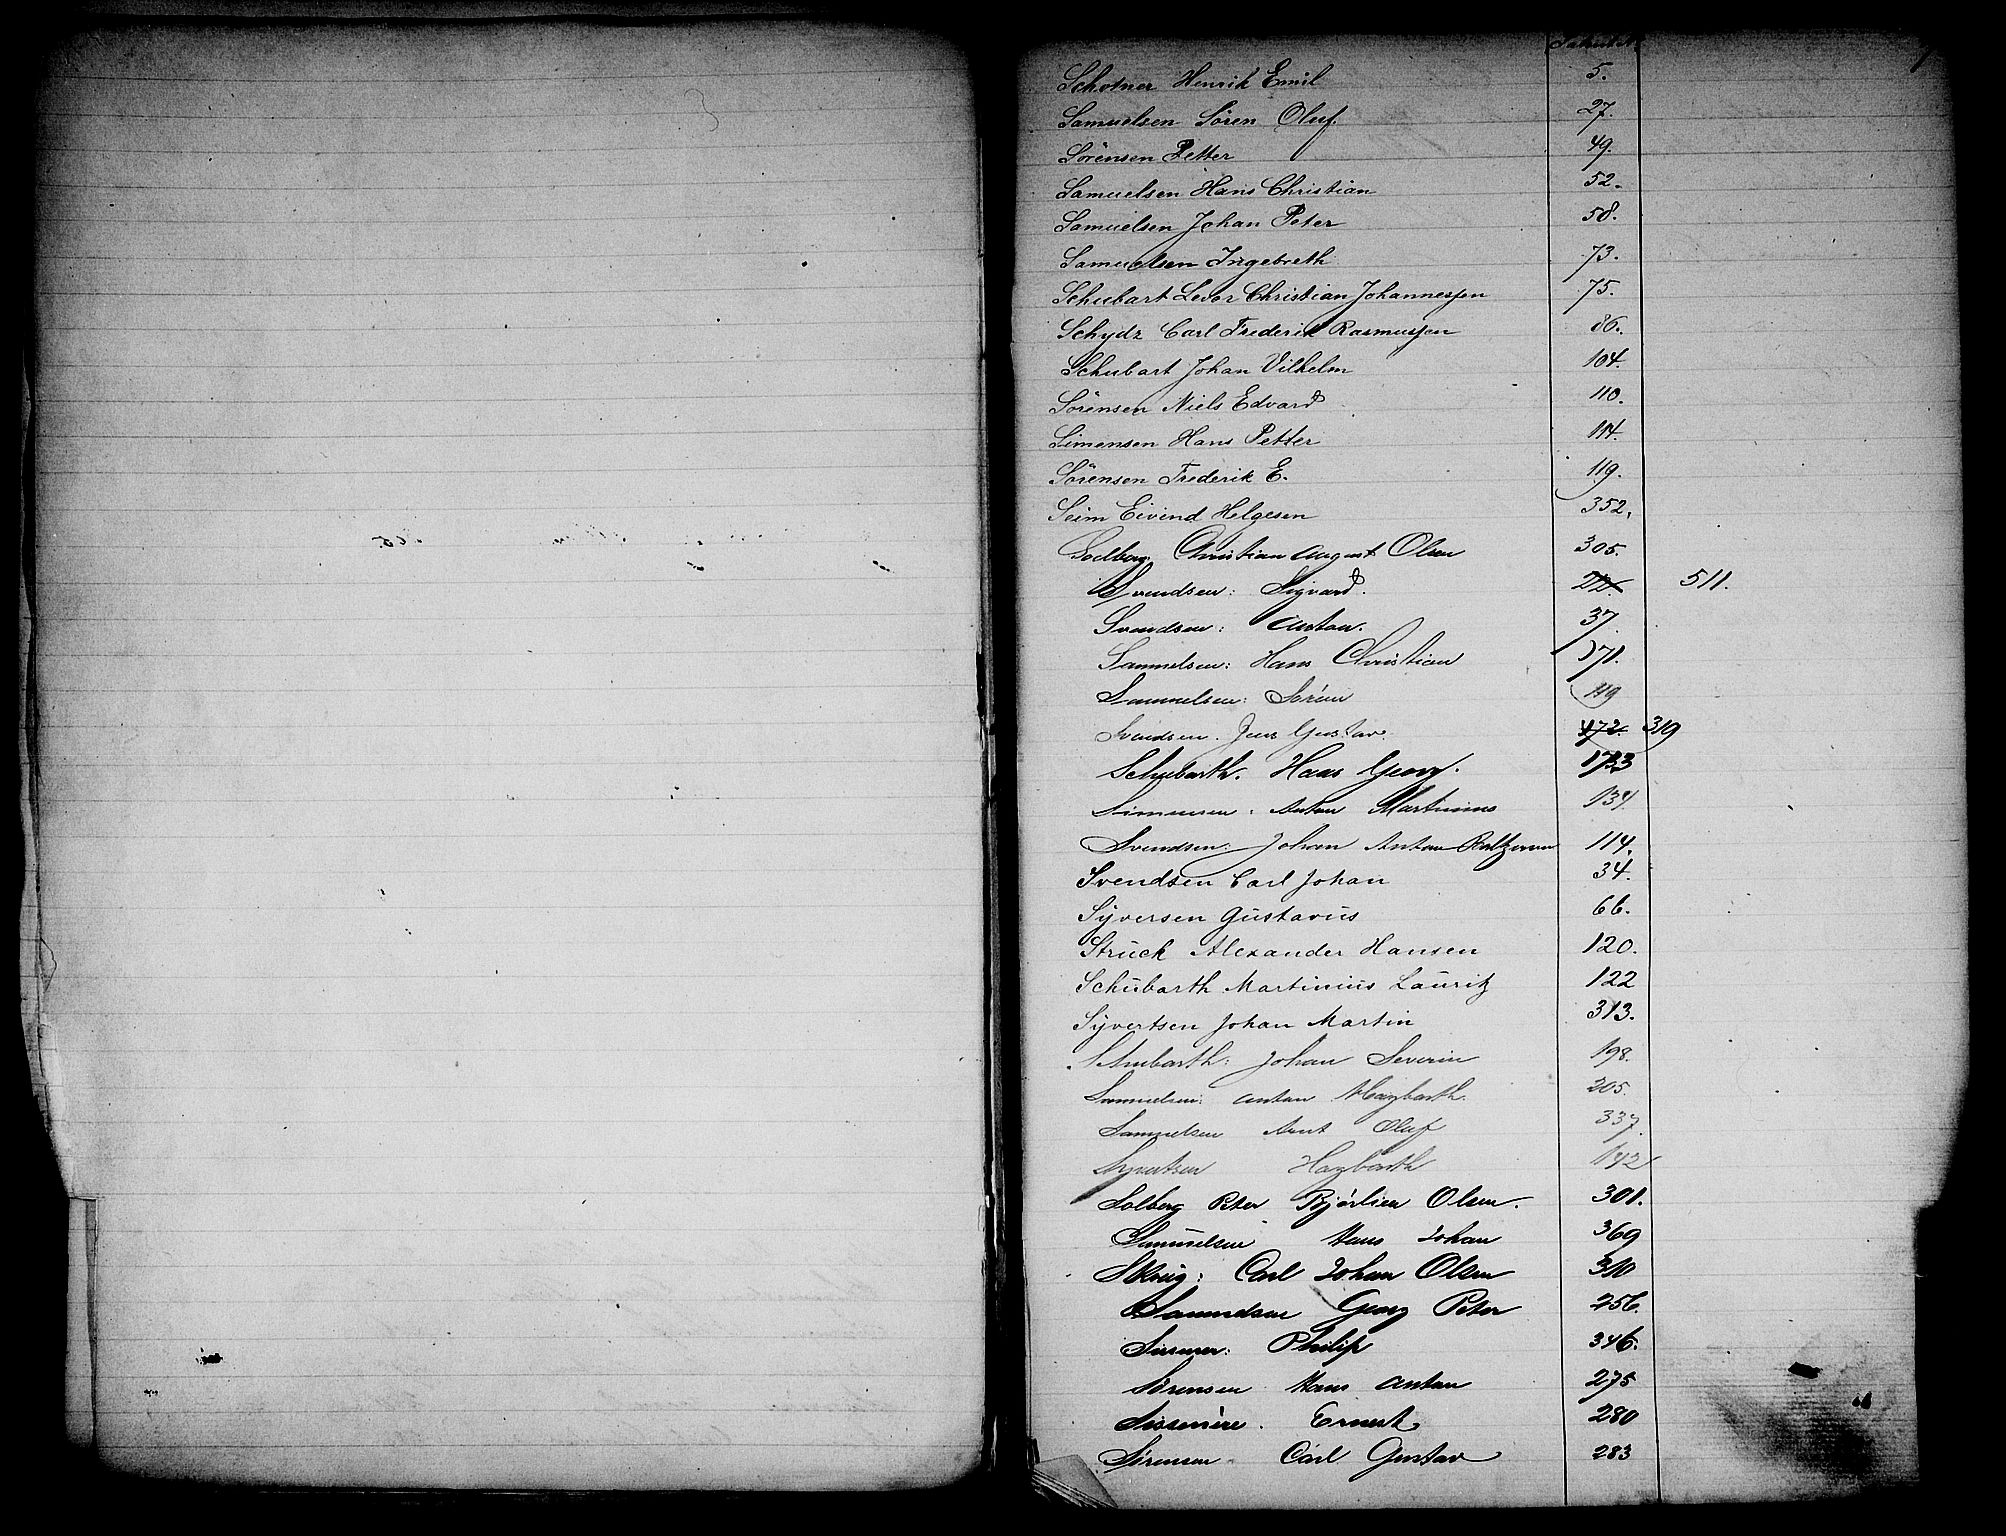 Schotner Henrik Emil 5.
Samuelsen Sören Oluf. 27.
Sörensen Petter 49.
Samuelsen Hans Christian 52.
Samuelsen Johan Peter 58.
Samuelsen Ingebreth 73.
Schubart Levor Christian Johannessen 75.
Schydz Carl Frederik Rasmussen 86.
Schubart Johan Vilhelm 104.
Sörensen Niels Edvard 110.
Simensen Hans Petter 114.
Sörensen Frederik E. 119.
Seim Eivind Helgesen 352.
Solberg Christian August Olsen 305.
Svendsen: Sigvard. 22. 511.
Svendsen: Anton. 37.
Samuelsen: Hans Christian 171.
Samuelsen: Sörin 119
Svendsen. Jens Gustav. 172. 319
Schubarth. Hans Georg. 133
Simensen. Anton Martinius 134.
Svendsen: Johan Anton 114.
Svendsen Carl Johan 34.
Syversen Gustavus 66.
Struck Alexander Hansen 120.
Schubarth Martinius Lauritz 122
Syvertsen Johan Martin 313.
Schubarth: Johan Severin 198.
Samuelsen: Anton Haybarth. 205.
Samuelsen Arnt Oluf 337.
Syvertsen Haybarth 142
Solberg Peter Bjørlien Olsen. 301.
Samuelsen Hans Johan 369
Skrug: Carl Johan Olsen 310
Samuelsen Georg Peter 256.
Philip 346.
Sörensen Hans Anton 275
Ernest. 280
Sörensen Carl Gustav 283